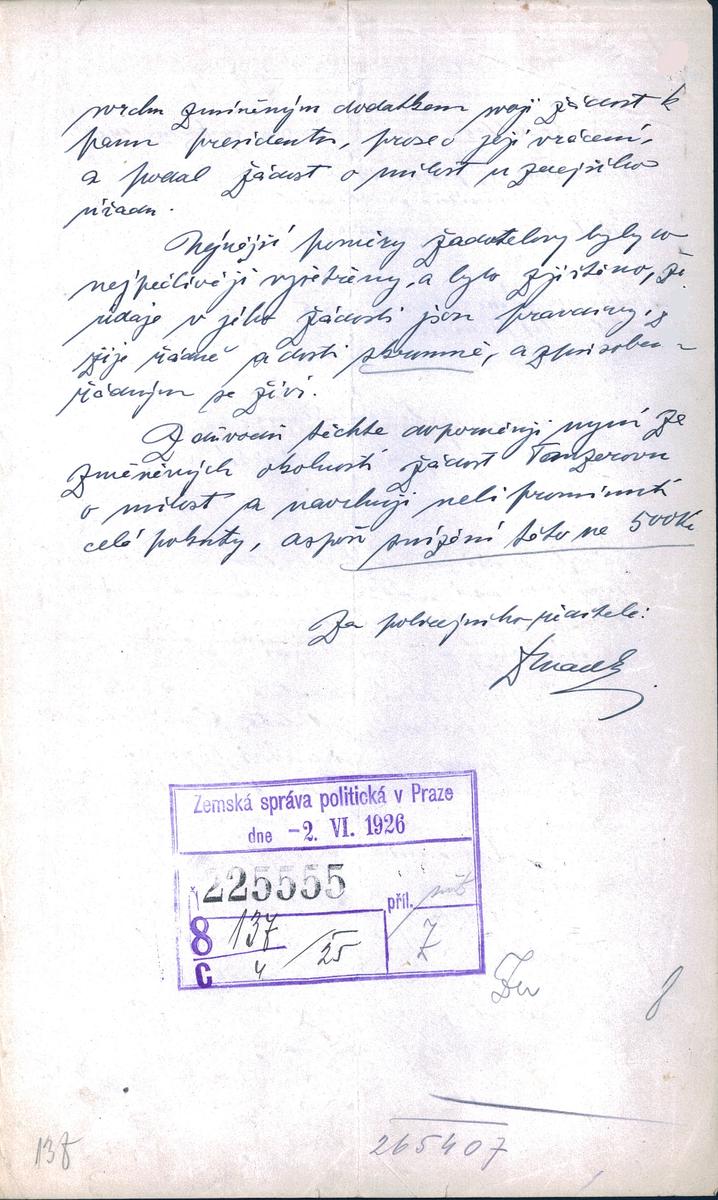 svrchu zmíněným dodatkem svoji žádost k
panu presidentu, prose o její vrácení,
a podal žádost o milost u zdejšího
úřadu.
Nynější poměry žadatelovy byly co
nejpečlivěji vyšetřeny, a bylo zjištěno, že
údaje v jeho žádosti jsou pravdivy, 
žije řádně a dosti skromně, a způsobem
řádným se živí.
Z důvodů těchto doporučuji nyní ze
změněných okolností žádost Tanzerovu
o milost a navrhuji neli prominutí
celé pokuty, aspoň snížení této na 500Kč
Za policejního ředitele:
Zemská správa politická v Praze
dne -2. VI. 1926
č 225555
příl.
8 137 / 25
C 4
7
8
137
265407